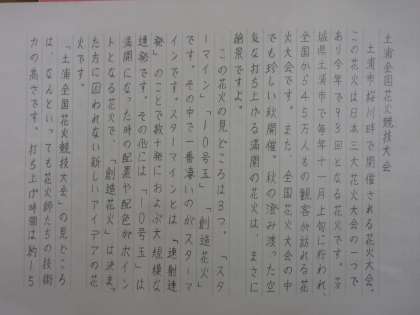 土浦全国花火競技大会
土浦市桜川畔で開催される花火大会。
この花火は日本三大花火大会の一つで
あり今年で93回となる花火です。茨
城県土浦市で毎年十一月上旬に行われ、
全国から45万人もの観客が訪れる花
火大会です。また、全国花火大会の中
でも珍しい秋開催。秋の澄み渡った空
気な打ち上がる満開の花火は、まさに
絶景ですよ。
この花火の見どころは3つ。「スタ
ーマイン」「10号玉」「創造花火」
です。その中で一番凄いのがスターマ
インです。スターマインとは、「速射連
発」のことで数十発におよぶ大規模な
連発です。その他には「10号玉」は
満開になった時の配置や配色がポイン
トとなる花火で、「創造花火」は決まっ
た方に囚われない新しいアイデアの花
火です。
「土浦全国花火競技大会」の見どころ
は、なんといっても花火師たちの技術
力の高さです。打ち上げ時間は約15